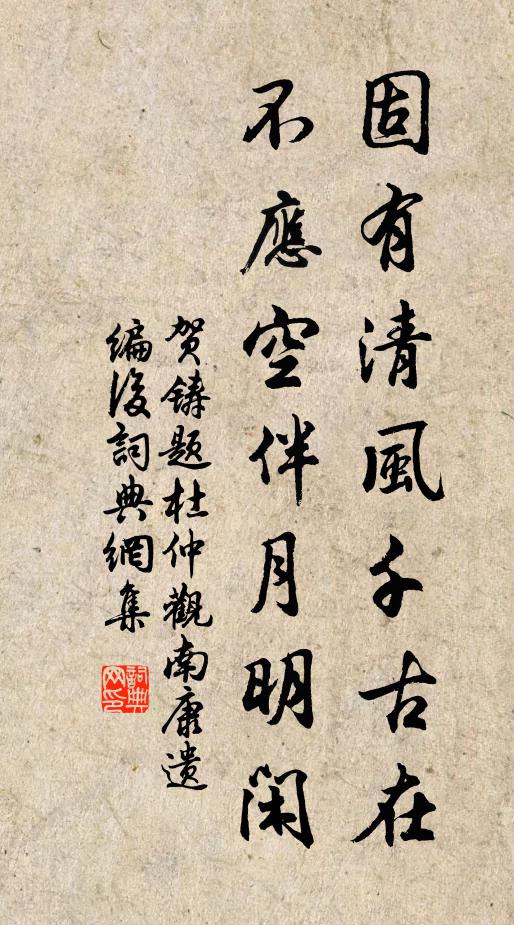 固有清風千古在
不應空伴月明閑
賀鑄題杜仲觀南康遺
編後詞典網集
詞典
网印